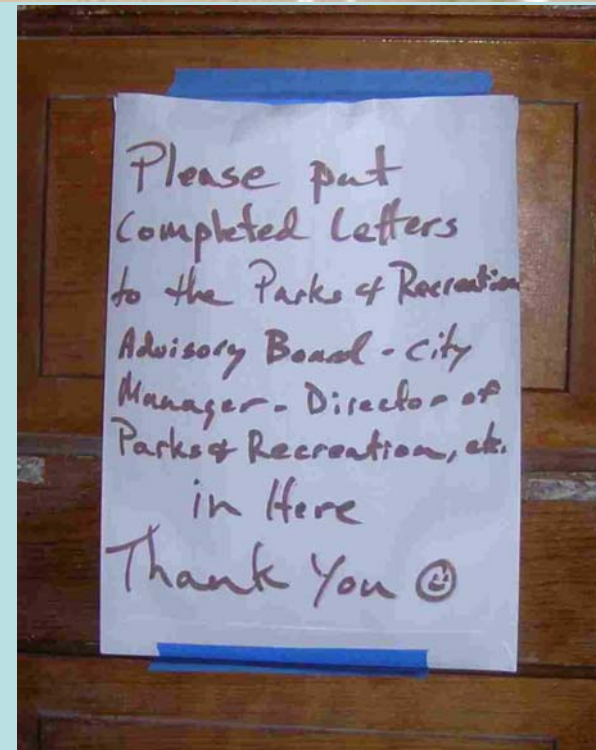 Please put
Completed Letters
to the Parks & Recreation
Advisory Board - City
Manager - Director of
Parks & Recreation, etc.
in Here
Thank You ☺